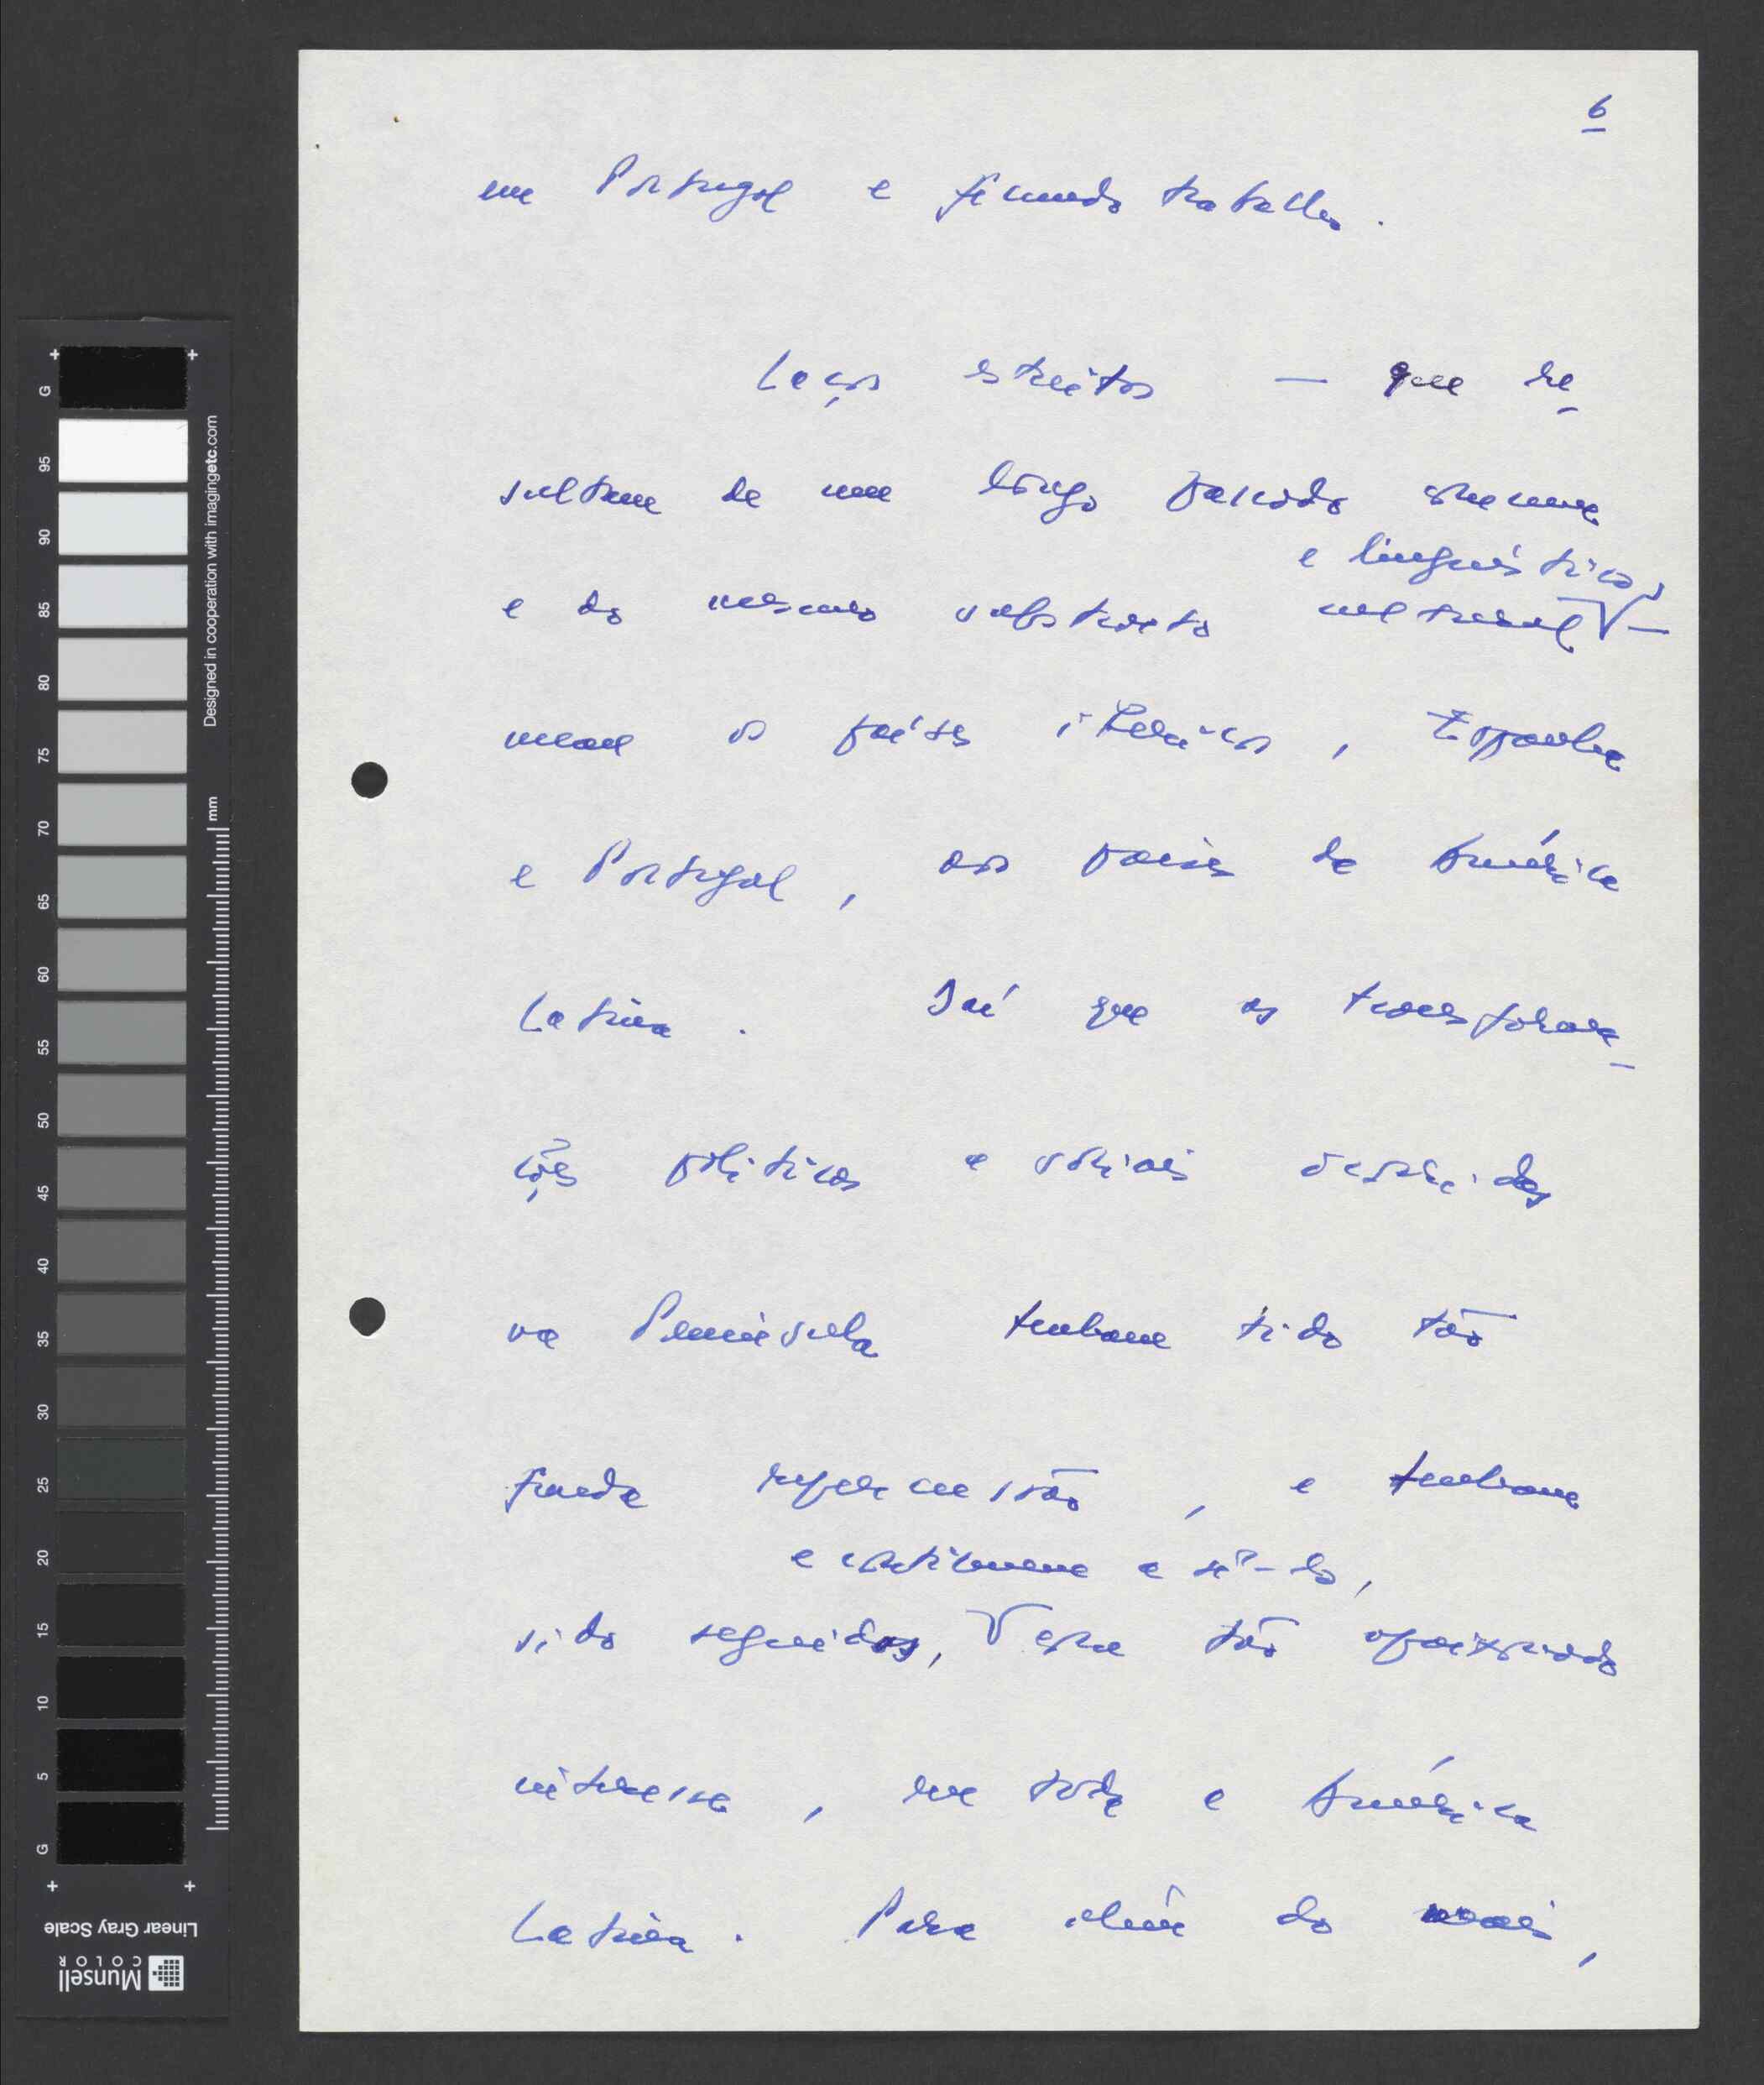 6
em Portugal e fecundo trabalho.
Laços estreitos — que re-
sultam de um longo passado comum
e linguístico,
e do mesmo substracto cultural V —
unem os países ibéricos, Espanha
e Portugal, aos países da América
Latina. Daí que as transforma-
ções políticas e sociais ocorridas
na Península tenham tido tão
funda repercussão, e tenham
e continuem a sê-lo,
sido seguidas, V com tão apaixonado
interesse, em toda a América
Latina. Para além do mais,
G 95 90 85 80 75 70 65 60 55 50 45 40 35 30 25 20 15 10 5 G
Designed in cooperation with imagingetc.com
mm
Linear Gray Scale
Munsell
COLOR